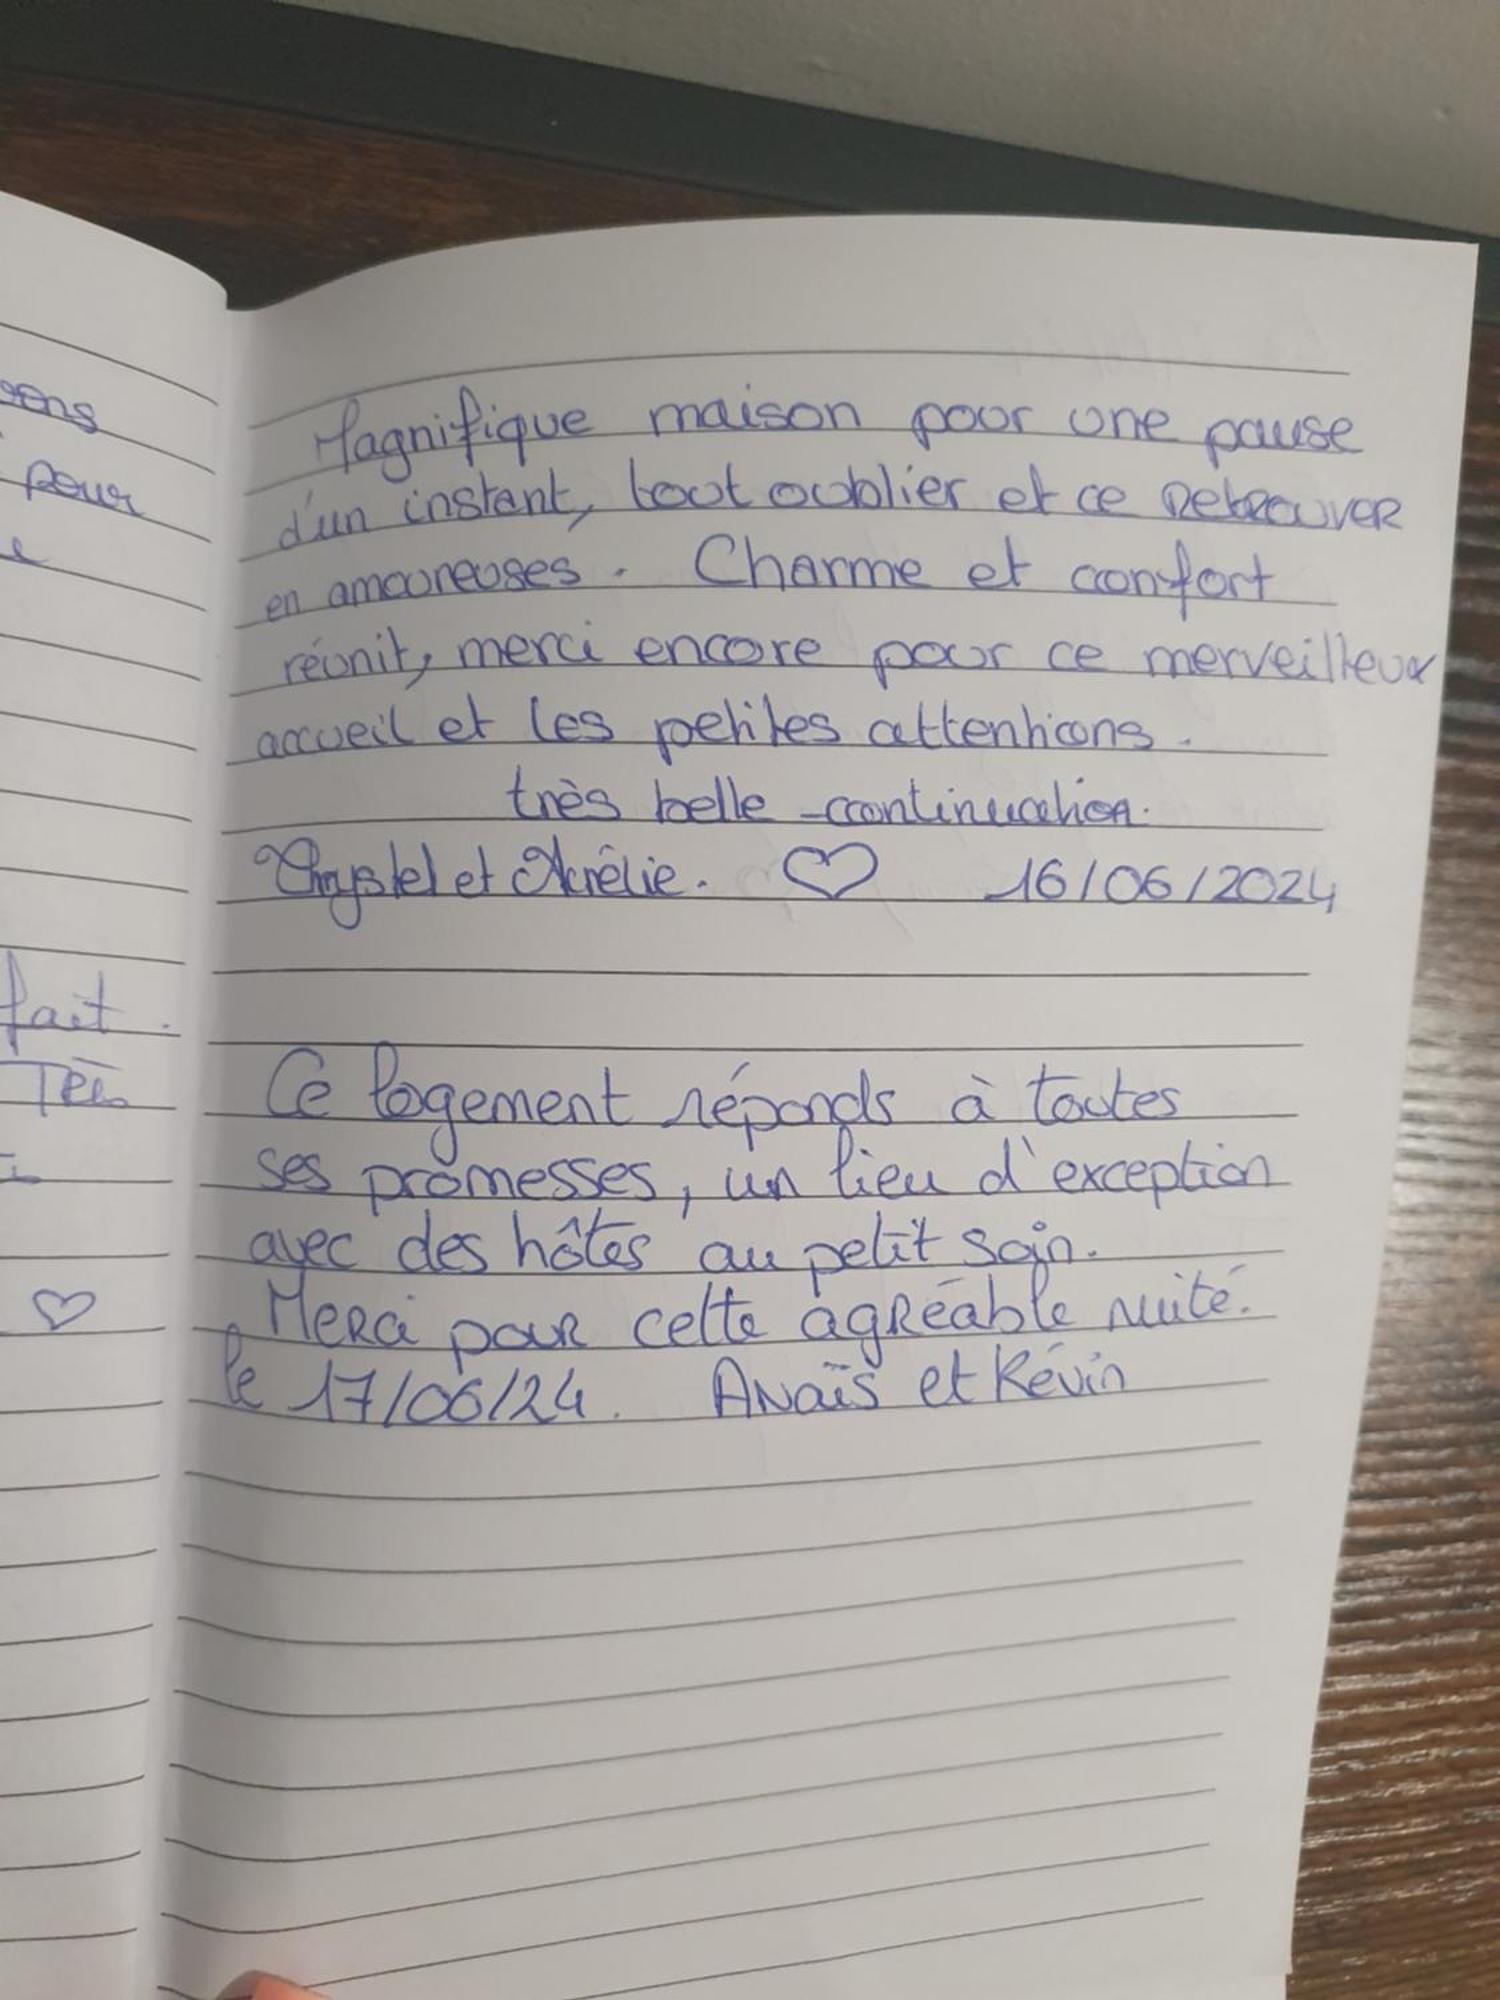 pour
fait.
Très
Magnifique maison pour une pause
d'un instant, tout oublier et ce retrouver
en amoureuses. Charme et confort
réunit, merci encore pour ce merveilleux
accueil et les petites attentions.
très belle continuation.
Chrystel et Aurélie. ♡ 16/06/2024
Ce logement réponds à toutes
ses promesses, un lieu d'exception
avec des hôtes au petit soin.
Merci pour cette agréable nuité.
le 17/06/24. Anaïs et Kévin